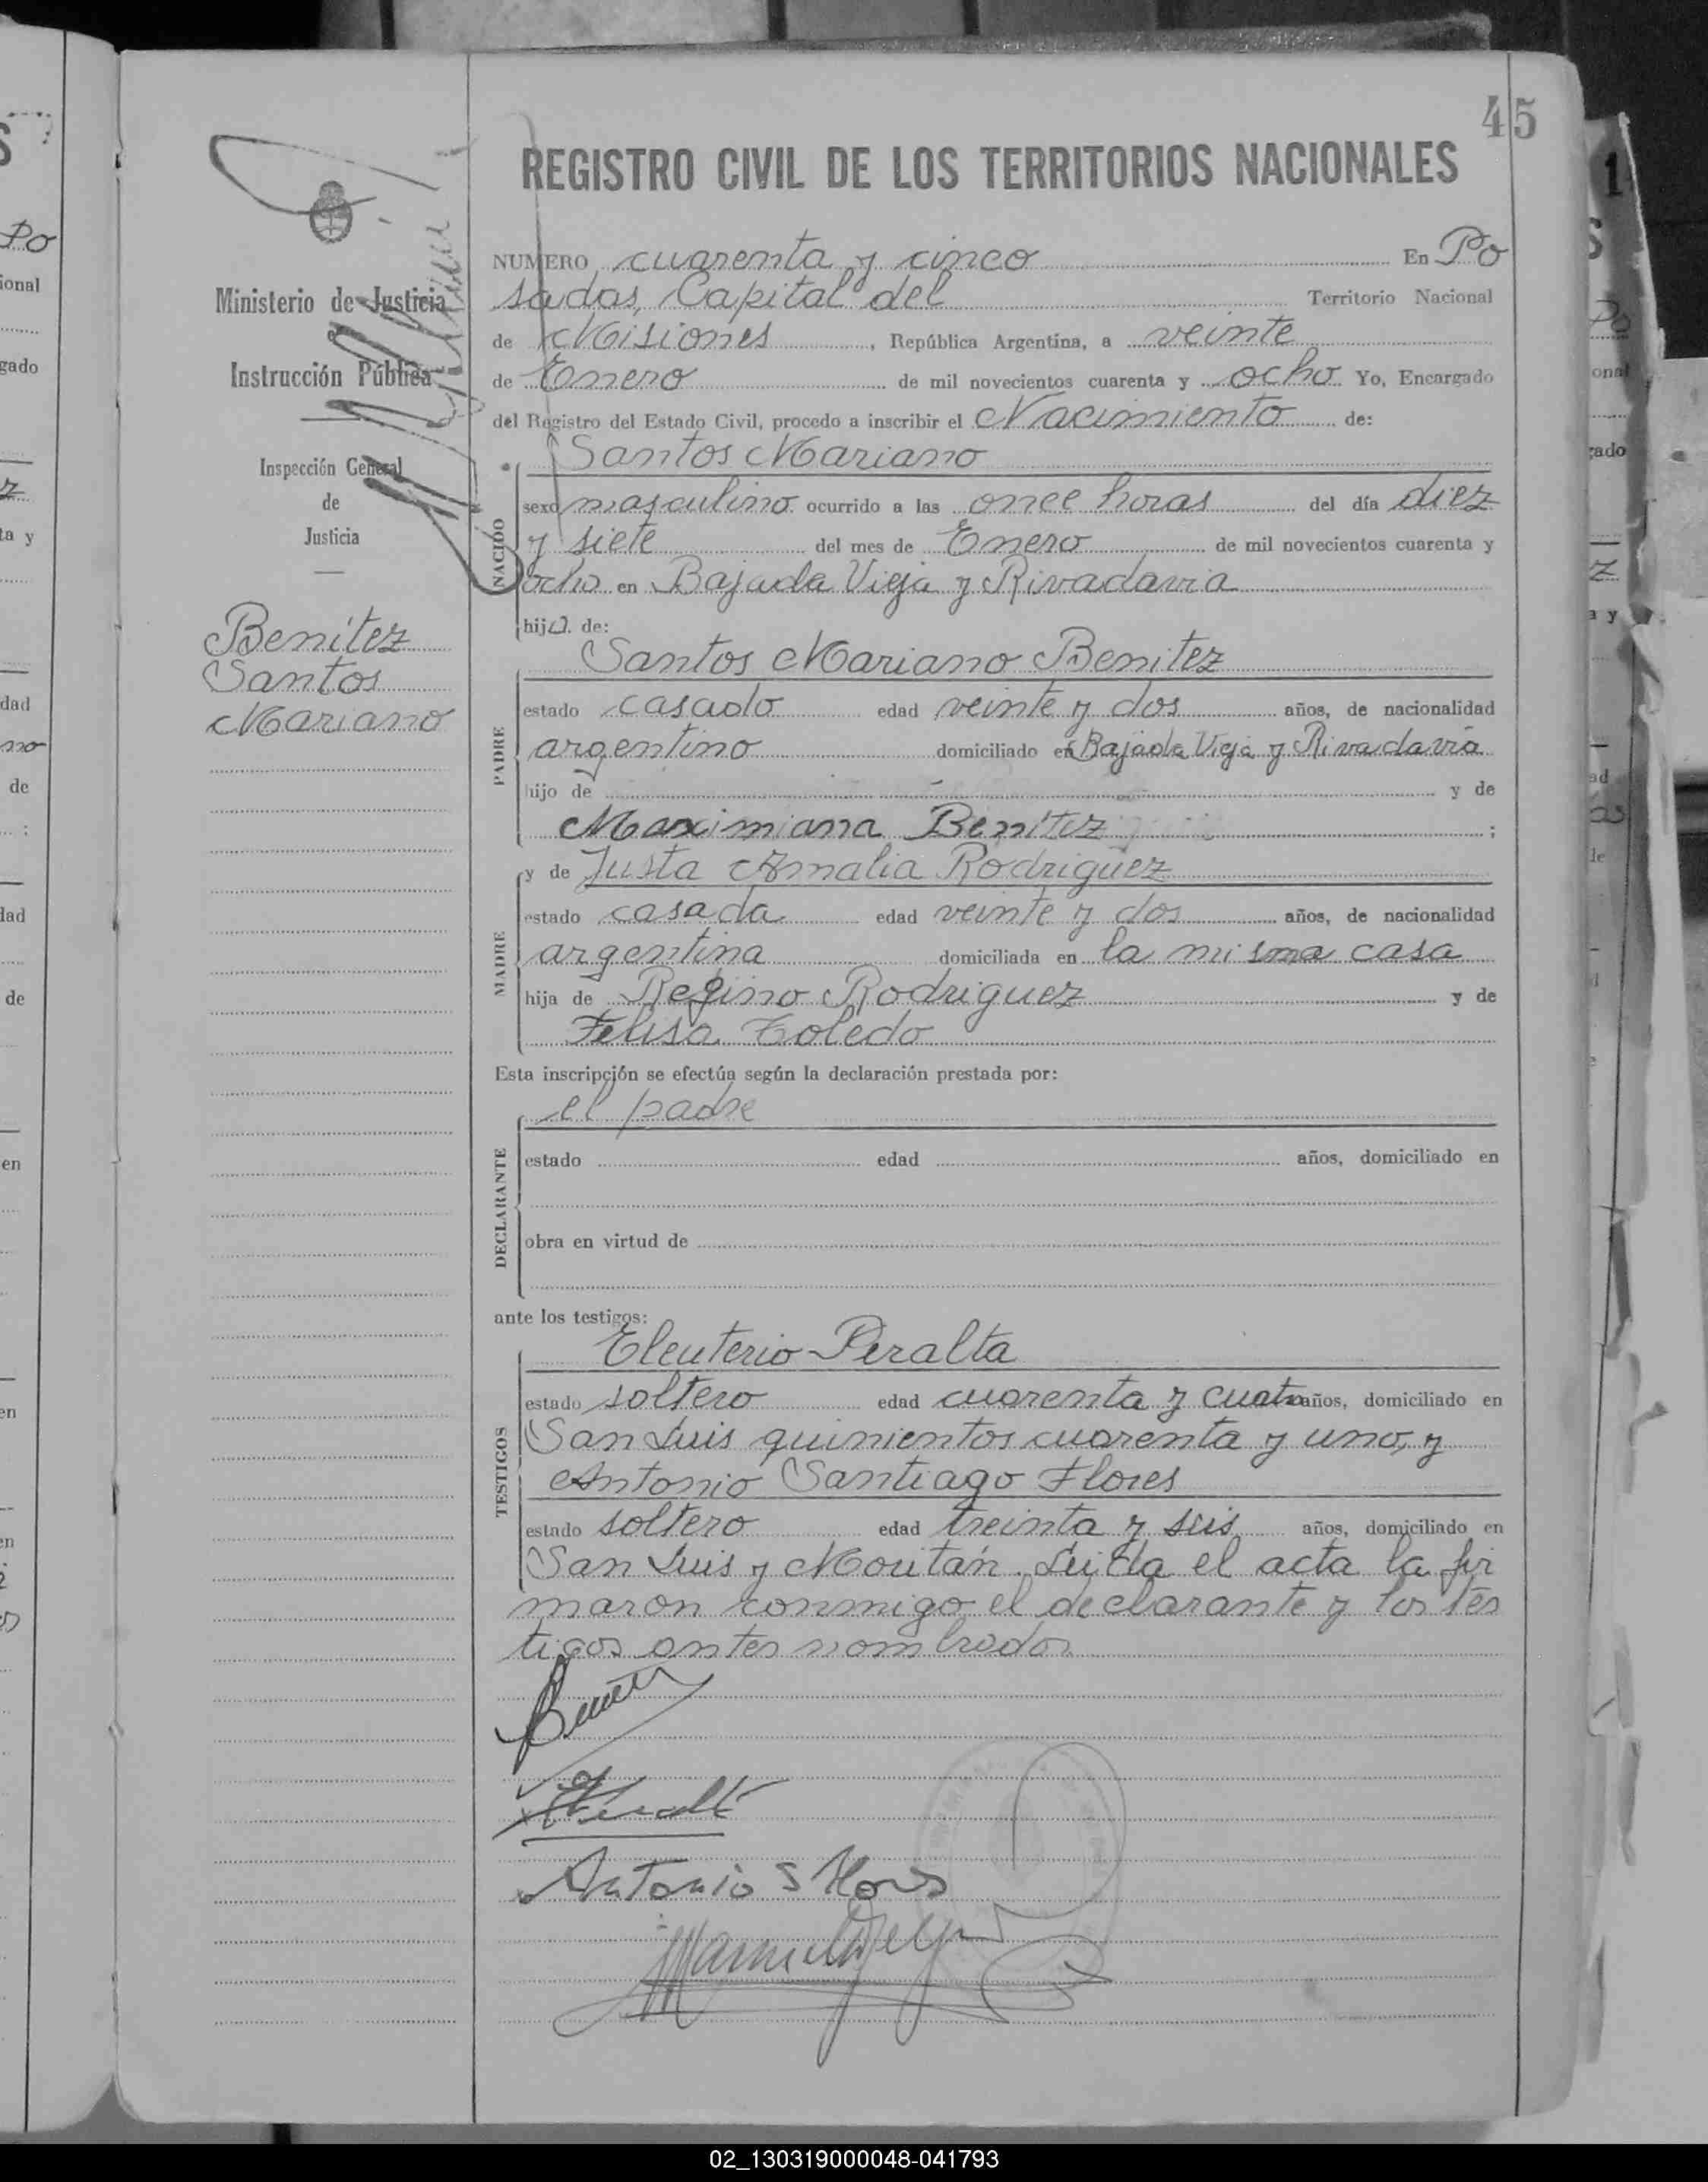 45
REGISTRO CIVIL DE LOS TERRITORIOS NACIONALES
Ministerio de Justicia
e
Instrucción Pública
Inspección General
de
Justicia
Benitez
Santos
Mariano
NUMERO cuarenta y cinco En Po
sadas, Capital del Territorio Nacional
de Misiones, República Argentina, a veinte
de Enero de mil novecientos cuarenta y ocho Yo, Encargado
del Registro del Estado Civil, procedo a inscribir el Nacimiento de:
Santos Mariano
NACIDO
sexo masculino ocurrido a las once horas del día diez
y siete del mes de Enero de mil novecientos cuarenta y
ocho en Bajada Vieja y Rivadavia
hijo de:
Santos Mariano Benitez
PADRE
estado casado edad veinte y dos años, de nacionalidad
argentino domiciliado en Bajada Vieja y Rivadavia
hijo de y de
Maximiana Benitez ;
y de Justa Amalia Rodriguez
MADRE
estado casada edad veinte y dos años, de nacionalidad
argentina domiciliada en la misma casa
hija de Regino Rodriguez y de
Felisa Toledo
Esta inscripción se efectúa según la declaración prestada por:
el padre
DECLARANTE
estado edad años, domiciliado en
obra en virtud de
ante los testigos:
Eleuterio Peralta
TESTIGOS
estado soltero edad cuarenta y cuatro años, domiciliado en
San Luis quinientos cuarenta y uno, y
Antonio Santiago Flores
estado soltero edad treinta y seis años, domiciliado en
San Luis y Moritán. Leida el acta la fir
maron conmigo el declarante y los tes
tigos antes nombrados
Antonio S Flores
02_130319000048-041793